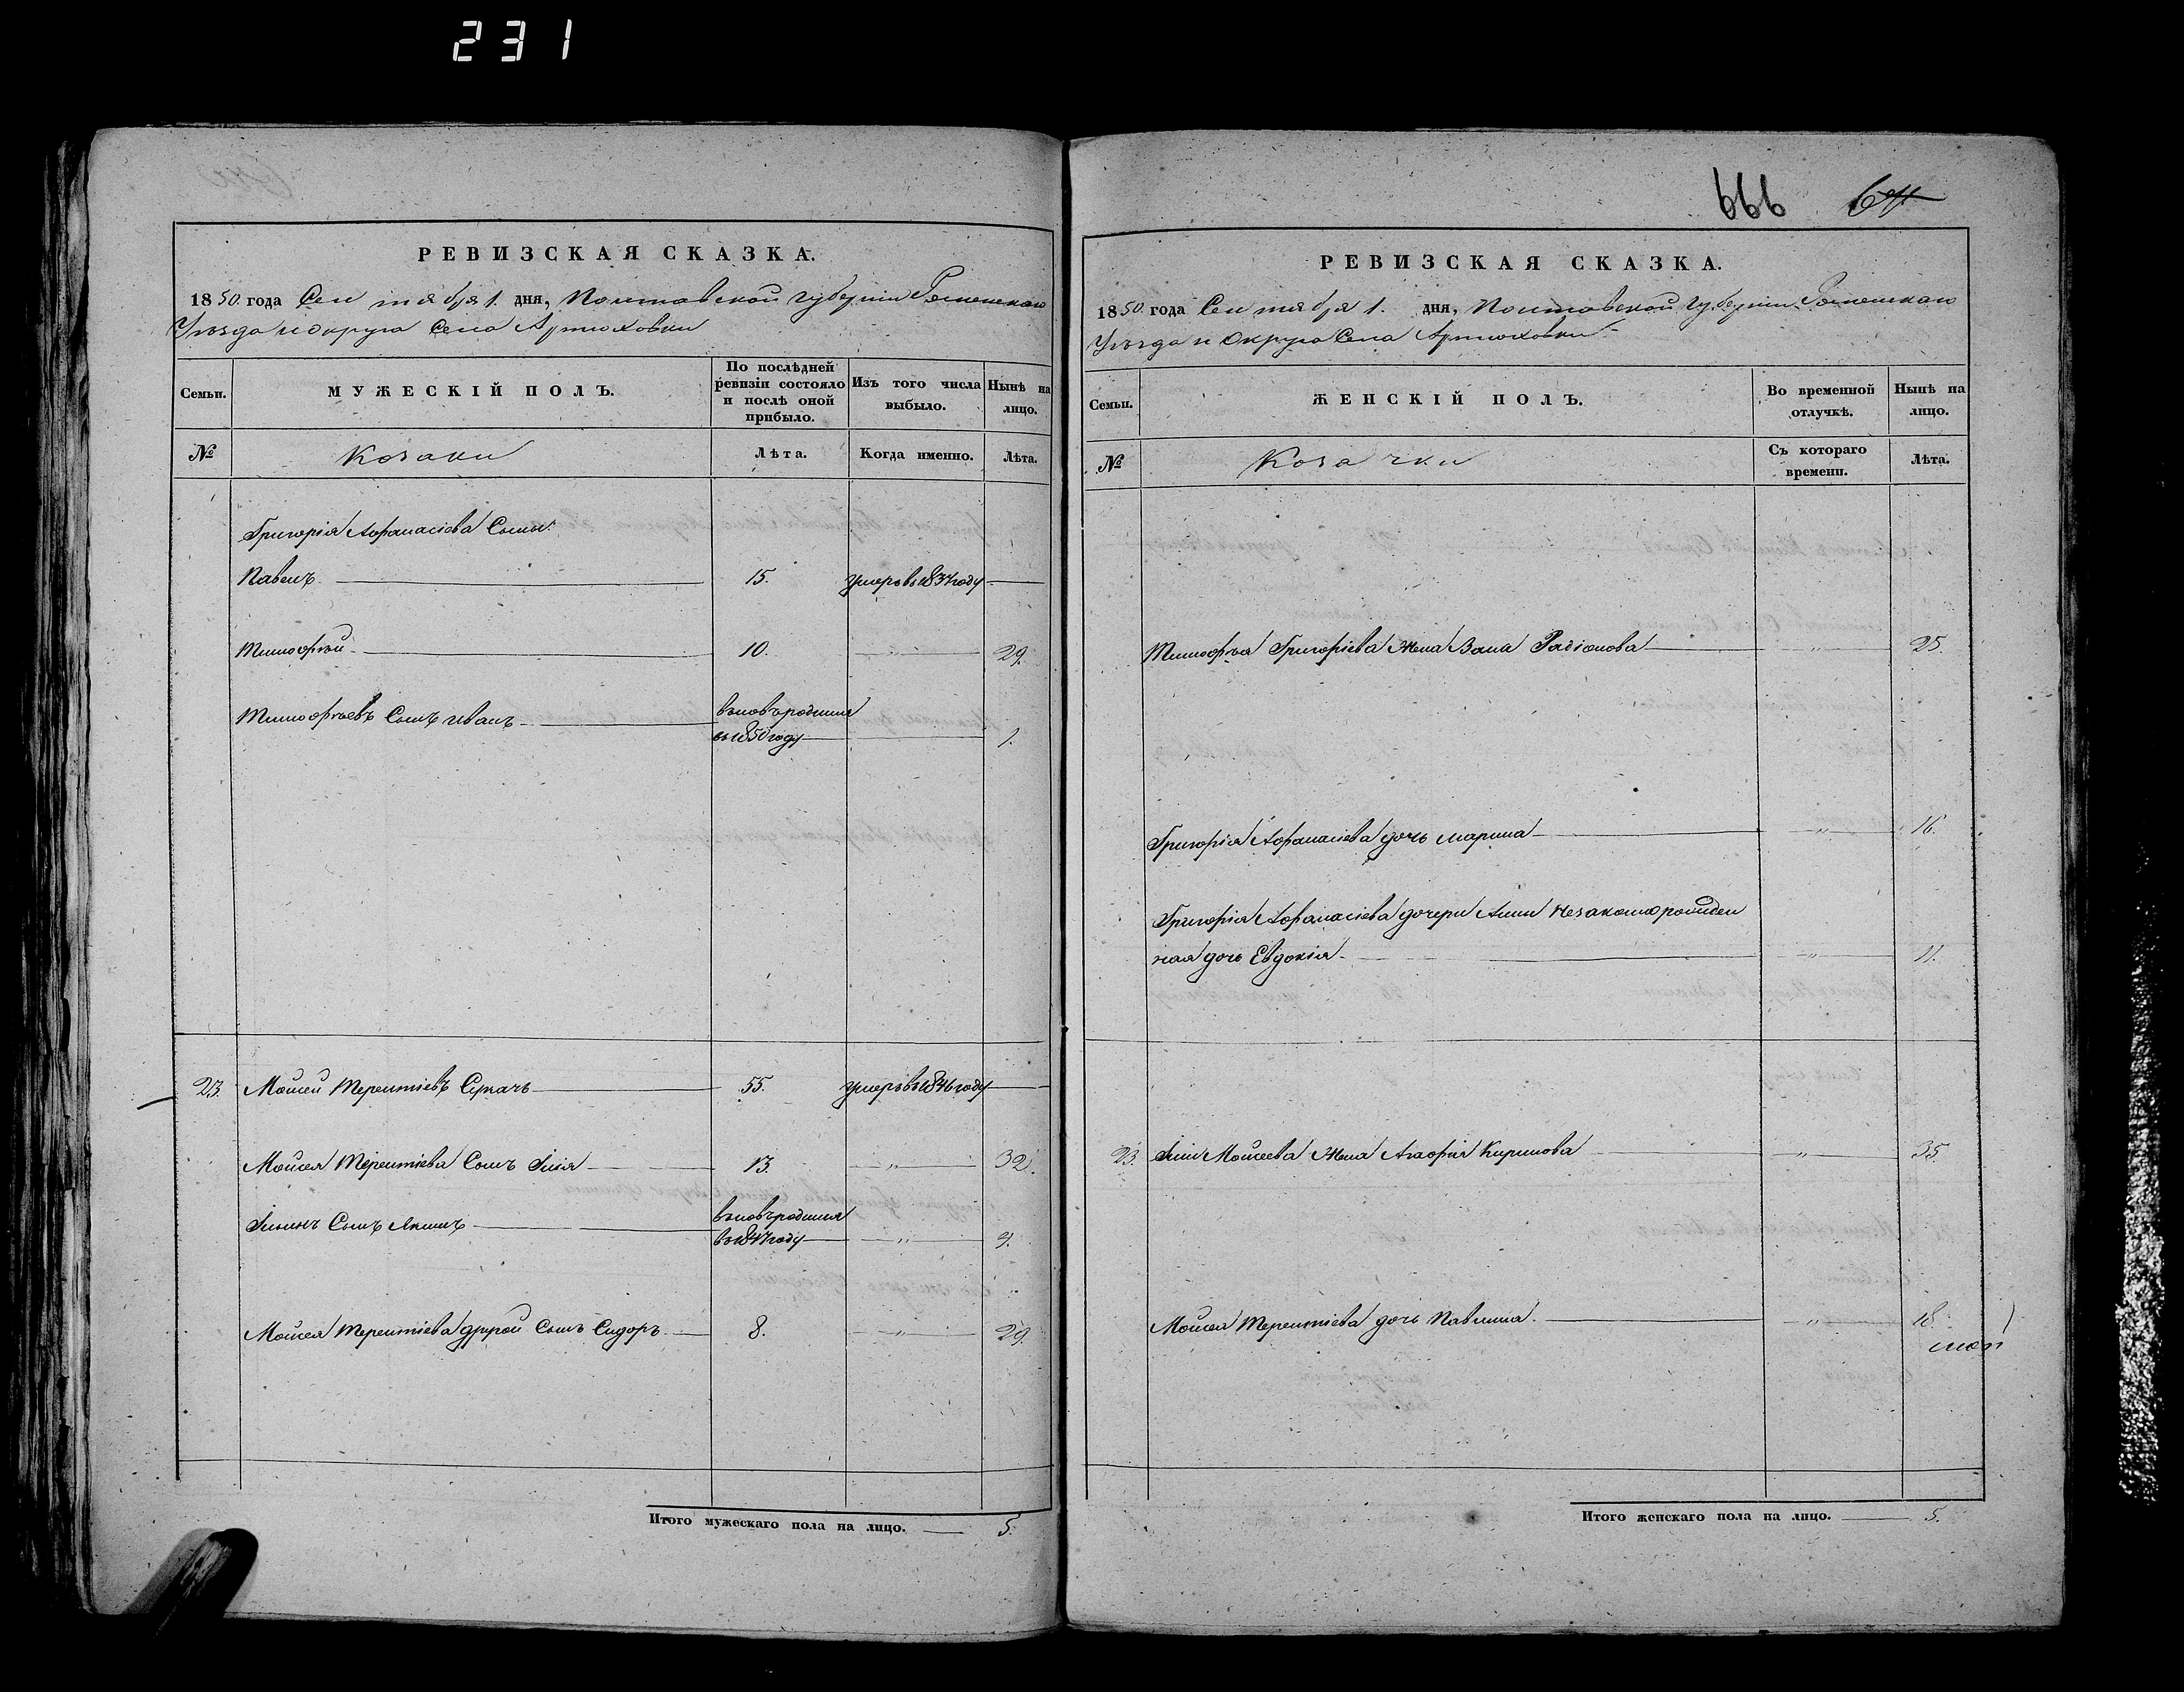 231
РЕВИЗСКАЯ СКАЗКА.
1850. года Сентября 1. дня, Полтавской губерніи Роменскаго
Уъзда и округа Села Артюховки
Семьи.
МУЖЕСКІЙ ПОЛЪ.
По послѣдней ревизіи состояло и послѣ оной прибыло.
Изъ того числа выбыло.
Нынѣ на лицо.
№
Козаки
Лѣта.
Когда именно.
Лѣта.
Григорія Афанасіева Сыны:
Павелъ 15. умеръ въ 1837 году
Тимофѣй 10. 29.
Тимофѣевъ Сынъ Иванъ
вновъродился
въ 1850 году 1.
23. Мойсей Терентіевъ Сукачъ 55. умеръ въ 1846 году
Мойсея Терентіева Сынъ Илія 13. " 32.
Ильинъ Сынъ Якимъ
вновъродился
въ 1847 году "
Мойсея Терентіева другой Сынъ Сидоръ 8. " 29.
Итого мужескаго пола на лицо. 5.
666
РЕВИЗСКАЯ СКАЗКА.
1850. года Сентября 1. дня, Полтавской губерніи Роменскаго
Уъзда и Округа Села Артюховки
Семьи.
ЖЕНСКІЙ ПОЛЪ.
Во временной отлучкѣ.
Нынѣ на лицо.
№
Козачки
Съ котораго времени.
Лѣта.
Тимофѣя Григоріева Жена Радіонова " 25.
Григорія Афанасіева дочь Марина " 16.
Григорія Афанасіева дочери Анны Незаконо рожден
ная дочь Евдокія " 11.
23. Иліи Мойсеева Жена Агафія Кирилова " 35.
Мойсея Терентіева дочь Павлина. " 18.
Итого женскаго пола на лицо. 5.